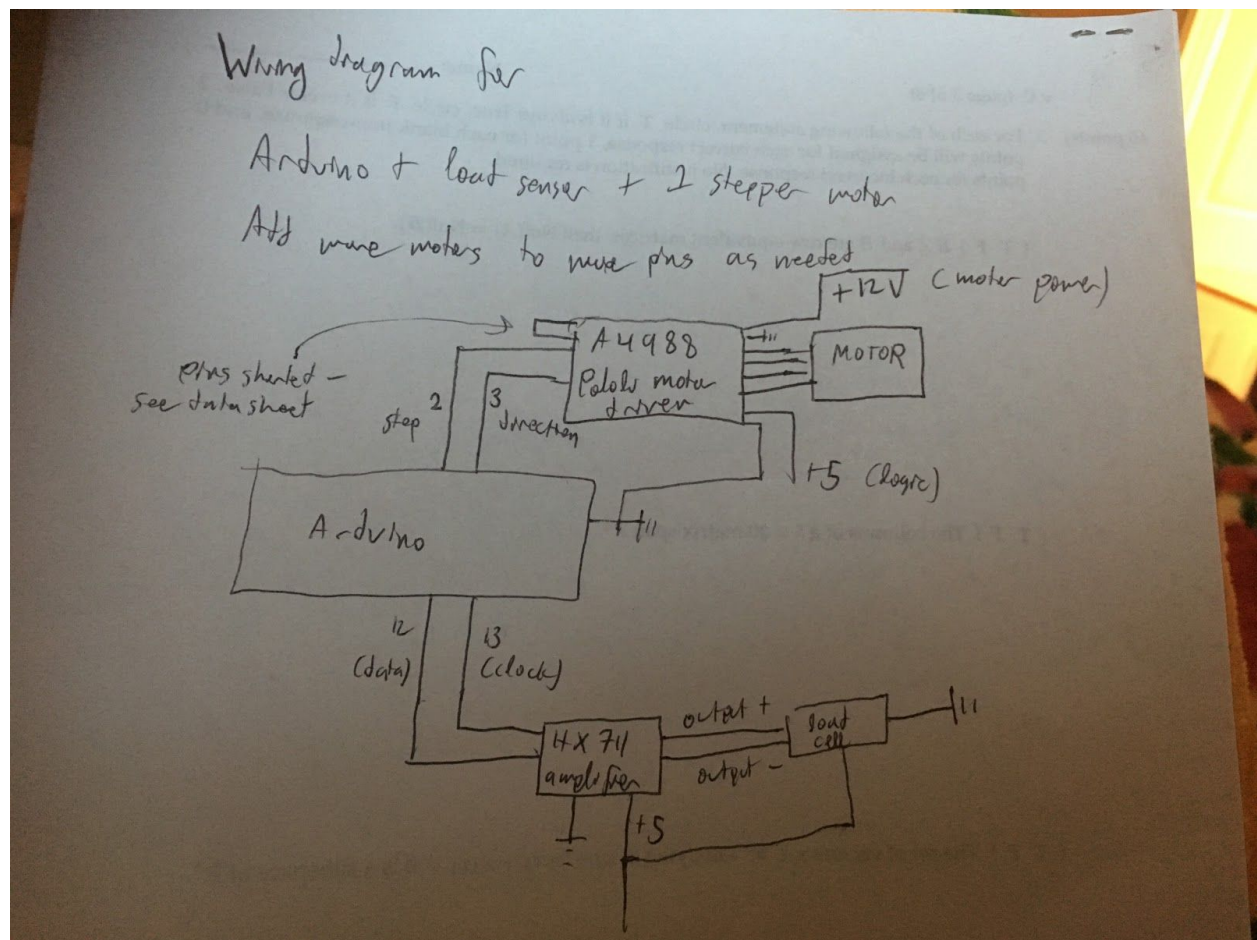 Wiring diagram for
Arduino + load sensor + 1 stepper motor
Add more motors to more pins as needed
+12V (motor power)
A4988
Pololu motor
driver
MOTOR
pins shorted -
see datasheet
step 2
3 direction
+5 (logic)
Arduino
12
(data)
13
(clock)
HX711
amplifier
output +
output -
load
cell
+5